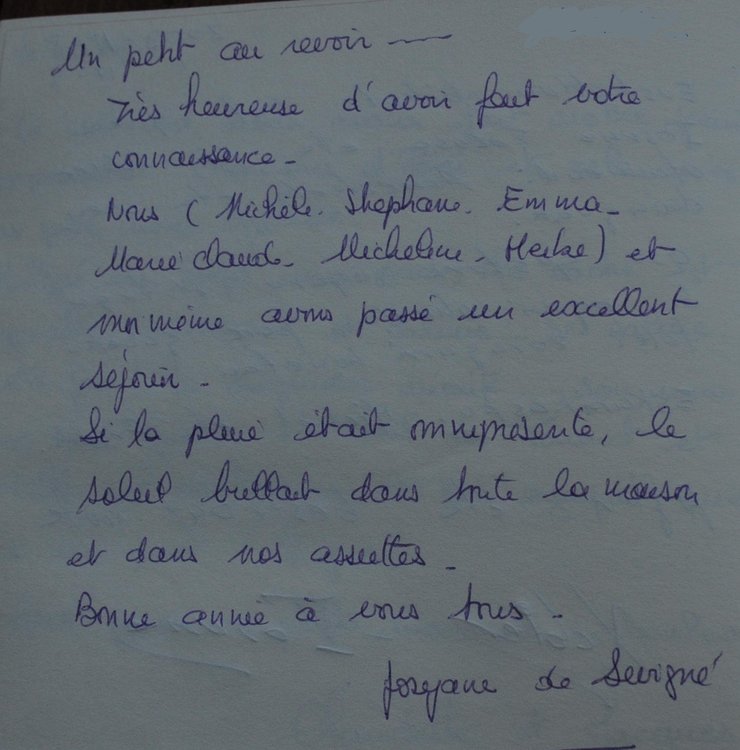 Un petit au revoir —
Très heureuse d'avoir fait votre
connaissance -
Nous ( Michèle. Stephane. Emma -
Marie claude - Micheline - ) et
moi même avons passé un excellent
séjour -
Si la pluie était omniprésente, le
soleil brillait dans toute la maison
et dans nos assiettes -
Bonne année à vous tous -
Josyane de Sevigné